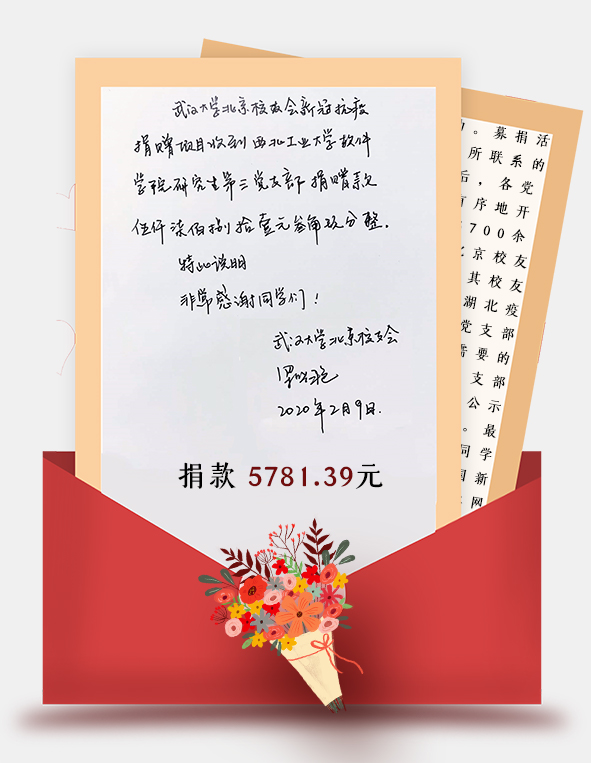 武汉大学北京校友会新冠抗疫
捐赠项目收到西北工业大学软件
学院研究生第三党支部捐赠款
伍仟柒佰捌拾壹元叁角玖分整。
特此说明
非常感谢同学们！
武汉大学北京校友会
2020年2月9日.
捐款 5781.39元
。募捐活
所联系的
后，各党
有序地开
700余
北京校友
其校友
湖北疫
党支部
需要的
支部
公示
。最
同学
国新
网